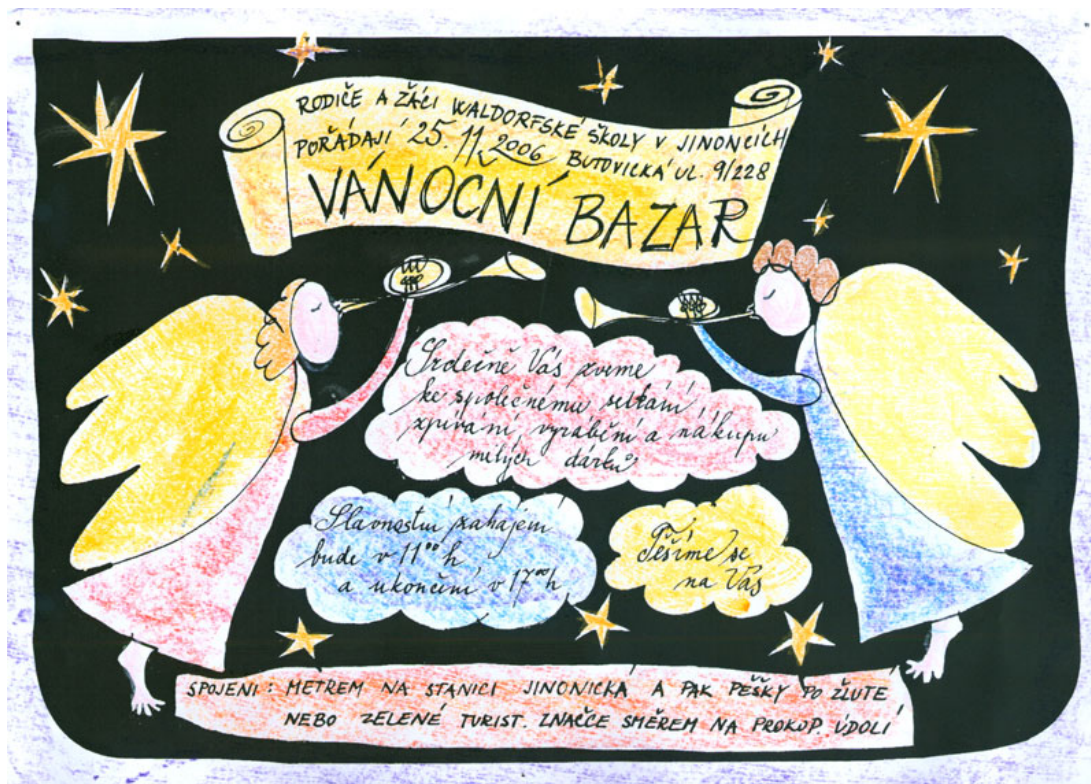 RODIČE A ŽÁCI WALDORFSKÉ ŠKOLY V JINONICÍCH
POŘÁDAJÍ 25. 11. 2006 BUTOVICKÁ UL. 9/228
VÁNOCNÍ BAZAR
Srdečně Vás zveme
ke společnému setkání,
zpívání, vyrábění a nákupu
milých dárků
Slavnostní zahájení
bude v 11⁰⁰ h
a ukončení v 17⁰⁰ h
Těšíme se
na Vás
SPOJENI : METREM NA STANICI JINONICKÁ A PAK PĚŠKY PO ŽLUTÉ
NEBO ZELENÉ TURIST. ZNAČCE SMĚREM NA PROKOP. ÚDOLÍ